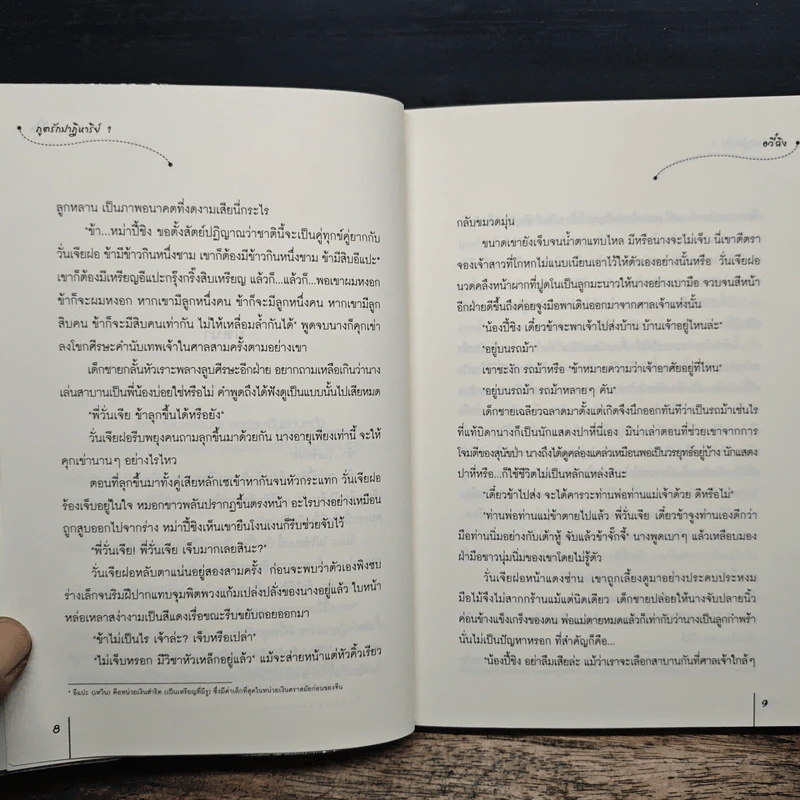 ภูตรักปาฏิหาริย์ 1
ลูกหลาน เป็นภาพอนาคตที่งดงามเสียนี่กระไร
"ข้า...หม่าปี้ชิง ขอตั้งสัตย์ปฏิญาณว่าชาตินี้จะเป็นคู่ทุกข์คู่ยากกับ
วั่นเจียฝอ ข้ามีข้าวกินหนึ่งชาม เขาก็ต้องมีข้าวกินหนึ่งชาม ข้ามีสิบอีแปะ*
เขาก็ต้องมีเหรียญอีแปะกรุ๊งกริ๊งสิบเหรียญ แล้วก็...แล้วก็...พอเขาผมหงอก
ข้าก็จะผมหงอก หากเขามีลูกหนึ่งคน ข้าก็จะมีลูกหนึ่งคน หากเขามีลูก
สิบคน ข้าก็จะมีสิบคนเท่ากัน ไม่ให้เหลื่อมล้ำกันได้" พูดจบนางก็คุกเข่า
ลงโขกศีรษะคำนับเทพเจ้าในศาลสามครั้งตามอย่างเขา
เด็กชายกลั้นหัวเราะพลางลูบศีรษะอีกฝ่าย อยากถามเหลือเกินว่านาง
เล่นสาบานเป็นพี่น้องบ่อยใช่หรือไม่ คำพูดถึงได้ฟังดูเป็นแบบนั้นไปเสียหมด
"พี่วั่นเจีย ข้าลุกขึ้นได้หรือยัง"
วั่นเจียฝอรีบพยุงคนถามลุกขึ้นมาด้วยกัน นางอายุเพียงเท่านี้ จะให้
คุกเข่านานๆ อย่างไรไหว
ตอนที่ลุกขึ้นมาทั้งคู่เสียหลักเซเข้าหากันจนหัวกระแทก วั่นเจียฝอ
ร้องเจ็บอยู่ในใจ หมอกขาวพลันปรากฏขึ้นตรงหน้า อะไรบางอย่างเหมือน
ถูกสูบออกไปจากร่าง หม่าปี้ชิงเห็นเขายืนโงนเงนก็รีบช่วยจับไว้
"พี่วั่นเจีย! พี่วั่นเจีย เจ็บมากเลยสินะ?"
วั่นเจียฝอหลับตาแน่นอยู่สองสามครั้ง ก่อนจะพบว่าตัวเองพิงซบ
ร่างเล็กจนริมฝีปากแทบจุมพิตพวงแก้มเปล่งปลั่งของนางอยู่แล้ว ใบหน้า
หล่อเหลาสง่างามเป็นสีแดงเรื่อขณะรีบขยับถอยออกมา
"ข้าไม่เป็นไร เจ้าล่ะ? เจ็บหรือเปล่า"
"ไม่เจ็บหรอก มีวิชาหัวเหล็กอยู่แล้ว" แม้จะส่ายหน้าแต่หัวคิ้วเรียว
* อีแปะ (เหวิน) คือหน่วยเงินตำริด (เป็นเหรียญที่มีรู) ซึ่งมีค่าเล็กที่สุดในหน่วยเงินตราสมัยก่อนของจีน
8
อวี๋ฉิง
กลับขมวดมุ่น
ขนาดเขายังเจ็บจนน้ำตาแทบไหล มีหรือนางจะไม่เจ็บ นี่เขาตีตรา
จองเจ้าสาวที่โกหกไม่แนบเนียนเอาไว้ให้ตัวเองอย่างนั้นหรือ วั่นเจียฝอ
นวดคลึงหน้าผากที่ปูดโนเป็นลูกมะนาวให้นางอย่างเบามือ จวบจนสีหน้า
อีกฝ่ายดีขึ้นถึงค่อยจูงมือพาเดินออกมาจากศาลเจ้าแห่งนั้น
"น้องปี้ชิง เดี๋ยวข้าจะพาเจ้าไปส่งบ้าน บ้านเจ้าอยู่ไหนล่ะ"
"อยู่บนรถม้า"
เขาชะงัก รถม้าหรือ "ข้าหมายความว่าเจ้าอาศัยอยู่ที่ไหน"
"อยู่บนรถม้า รถม้าหลายๆ คัน"
เด็กชายเฉลียวฉลาดมาตั้งแต่เกิดจึงนึกออกทันทีว่าเป็นรถม้าเช่นไร
ที่แท้บิดานางก็เป็นนักแสดงปาหี่นี่เอง มิน่าเล่าตอนที่ช่วยเขาจากการ
โจมตีของสุนัขป่า นางถึงได้ดูคล่องแคล่วเหมือนพอเป็นวรยุทธ์อยู่บ้าง นักแสดง
ปาหี่หรือ...ก็ใช้ชีวิตไม่เป็นหลักแหล่งสินะ
"เดี๋ยวข้าไปส่ง จะได้คารวะท่านพ่อท่านแม่เจ้าด้วย ดีหรือไม่"
"ท่านพ่อท่านแม่ข้าตายไปแล้ว พี่วั่นเจีย เดี๋ยวข้าจูงท่านเองดีกว่า
มือท่านนิ่มอย่างกับเต้าหู้ จับแล้วข้าจั๊กจี้" นางพูดเบาๆ แล้วเหลือบมอง
ฝ่ามือขาวนุ่มนิ่มของเขาโดยไม่รู้ตัว
วั่นเจียฝอหน้าแดงซ่าน เขาถูกเลี้ยงดูมาอย่างประคบประหงม
มือไม้จึงไม่สากกร้านแม้แต่นิดเดียว เด็กชายปล่อยให้นางจับปลายนิ้ว
ค่อนข้างแข็งเกร็งของตน พ่อแม่ตายหมดแล้วก็เท่ากับว่านางเป็นลูกกำพร้า
นั่นไม่เป็นปัญหาหรอก ที่สำคัญก็คือ...
"น้องปี้ชิง อย่าลืมเสียล่ะ แม้ว่าเราจะเลือกสาบานกันที่ศาลเจ้าใกล้ๆ
9